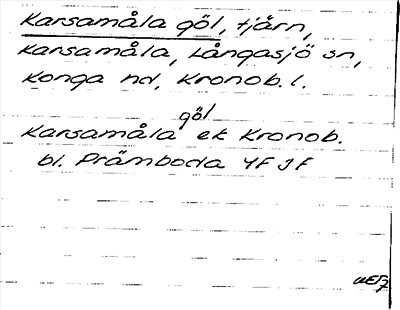 Karsamåla göl, tjärn,
Karsamåla, Långasjö sn,
Konga hd, Kronob. l.
göl
Karsamåla ek Kronob.
bl. Prämboda 4F JF